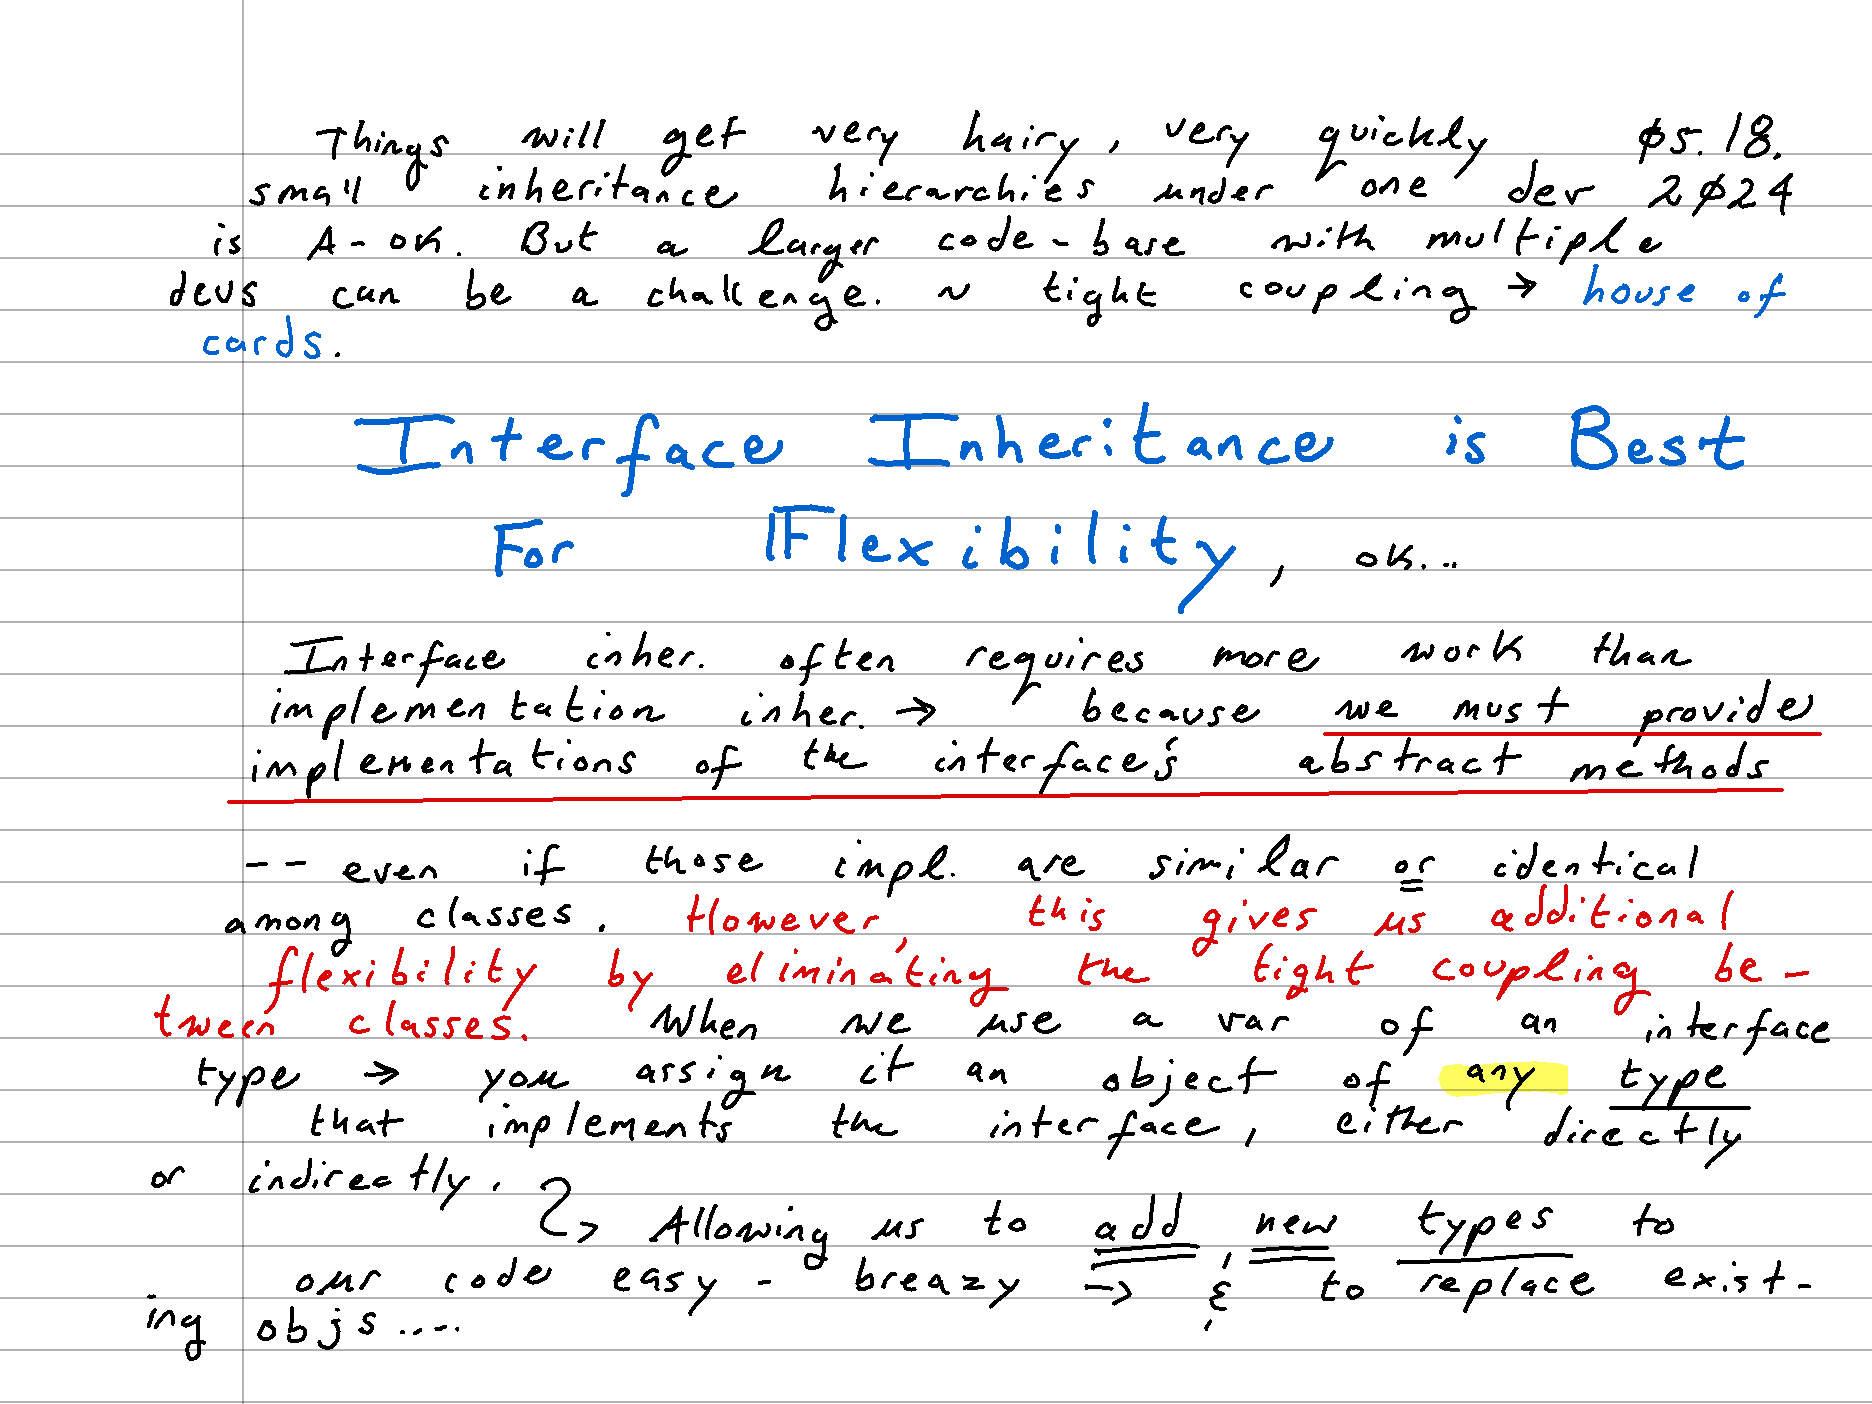 Things will get very hairy, very quickly 05.18.
small inheritance hierarchies under one dev 2024
is A-OK. But a larger code-base with multiple
devs can be a challenge. ~ tight coupling → house of
cards.
Interface Inheritance is Best
For Flexibility, ok...
Interface inher. often requires more work than
implementation inher. → because we must provide
implementations of the interface's abstract methods
-- even if those impl. are similar or identical
among classes. However, this gives us additional
flexibility by eliminating the tight coupling be-
tween classes. When we use a var of an interface
type → you assign it an object of any type
that implements the interface, either directly
or indirectly.
Allowing us to add new types to
our code easy-breazy -> & to replace exist-
ing objs....